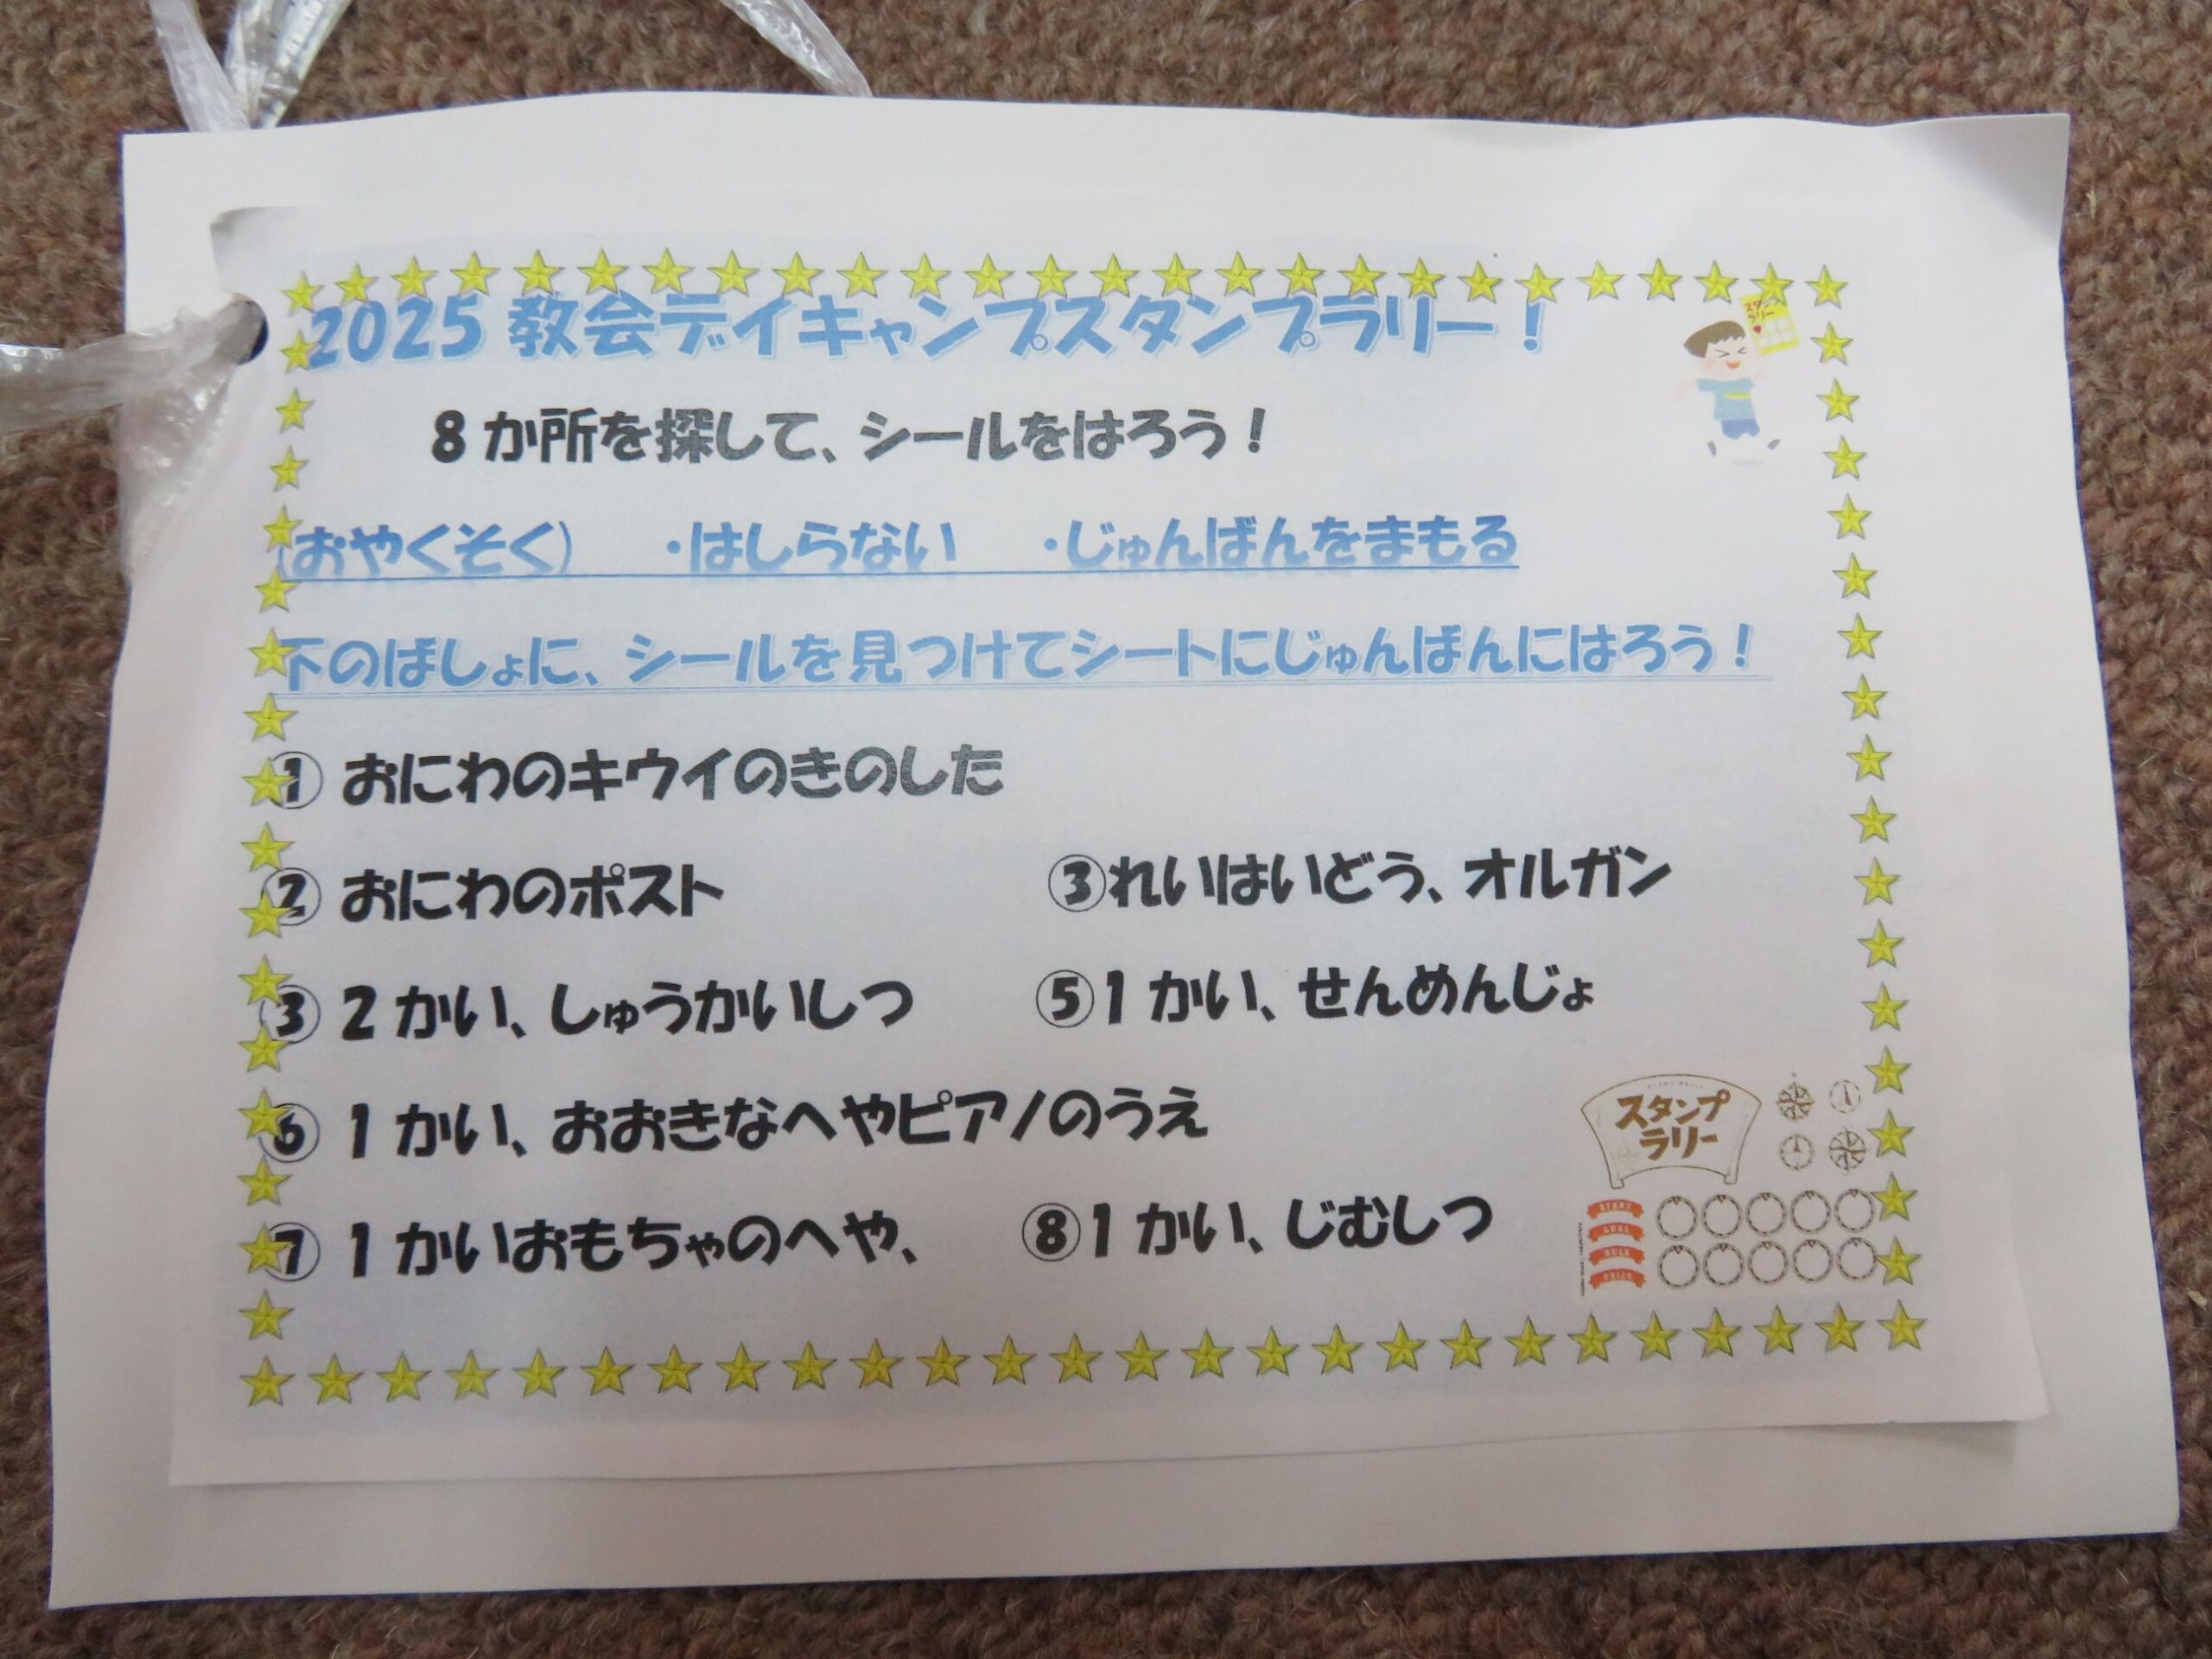 2025 教会デイキャンプスタンプラリー！
8か所を探して、シールをはろう！
（おやくそく）　・はしらない　・じゅんばんをまもる
下のばしょに、シールを見つけてシートにじゅんばんにはろう！
① おにわのキウイのきのした
② おにわのポスト　③れいはいどう、オルガン
③ 2かい、しゅうかいしつ　⑤1かい、せんめんじょ
⑥ 1かい、おおきなへやピアノのうえ
⑦ 1かいおもちゃのへや、　⑧1かい、じむしつ
スタンプ
ラリー
スタンプ
ラリー
START
GOAL
RULE
PRIZE